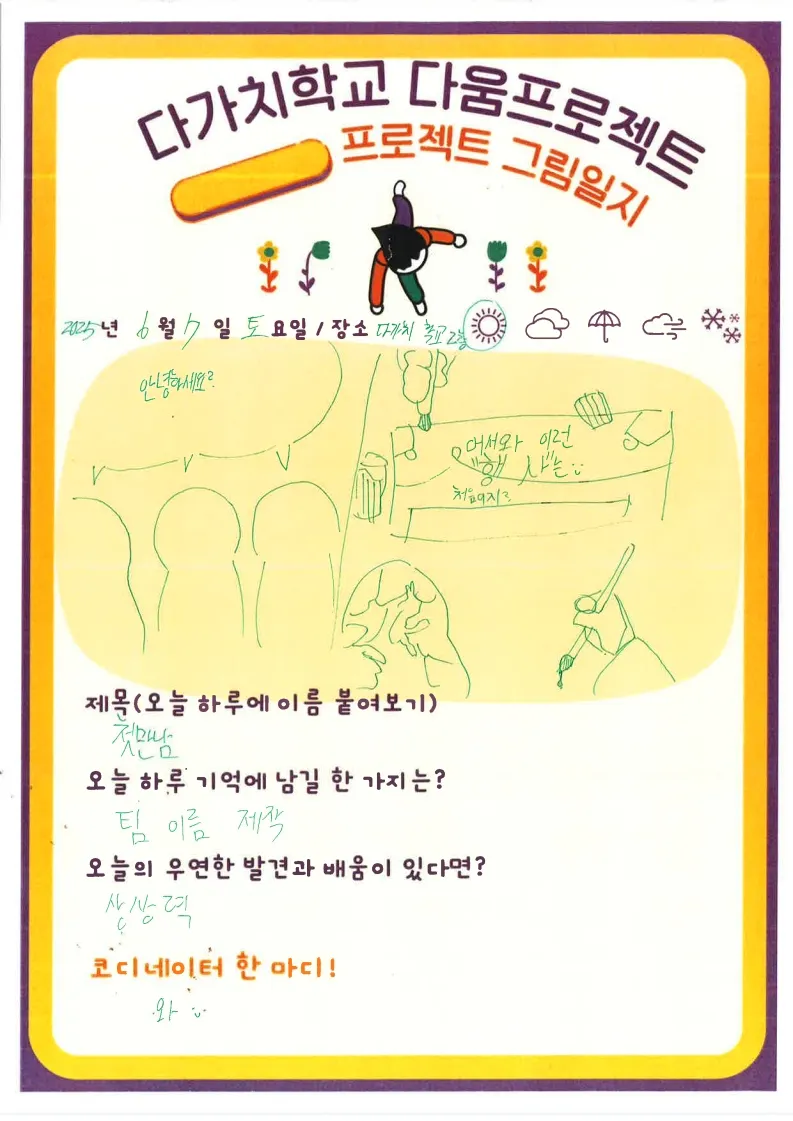 다가치학교 다움프로젝트
프로젝트 그림일지
2025년 6월 7일 토요일 / 장소 다가치 학교 2층
안녕하세요?
어서와 이런
"행사"는
처음이지?
제목(오늘 하루에 이름 붙여보기)
첫만남
오늘 하루 기억에 남길 한 가지는?
팀 이름 제작
오늘의 우연한 발견과 배움이 있다면?
상상력
코디네이터 한 마디!
와